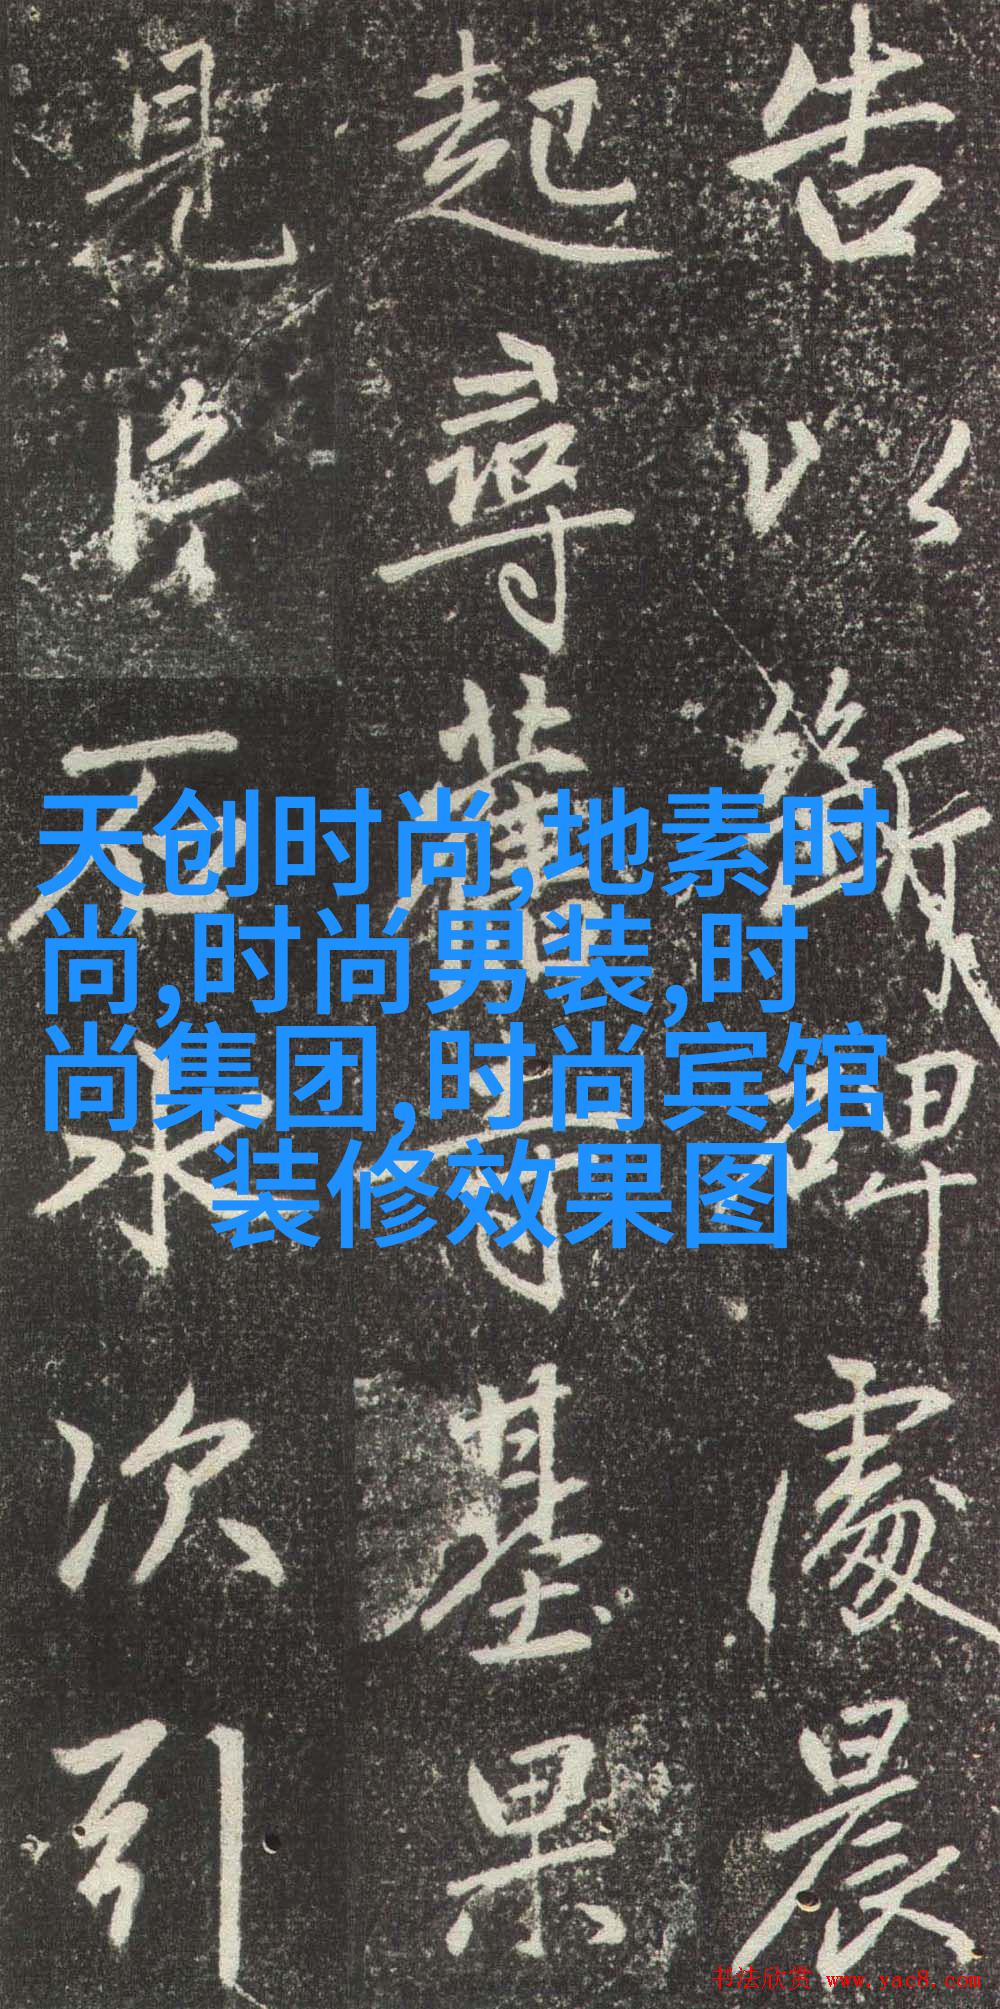 天创时尚,地素时
尚,时尚男装,时
尚集团,时尚宾馆
装修效果图
告以斷碑處晨
起尋舊寺基果
見片石次引
书法欣赏 www.yac8.com